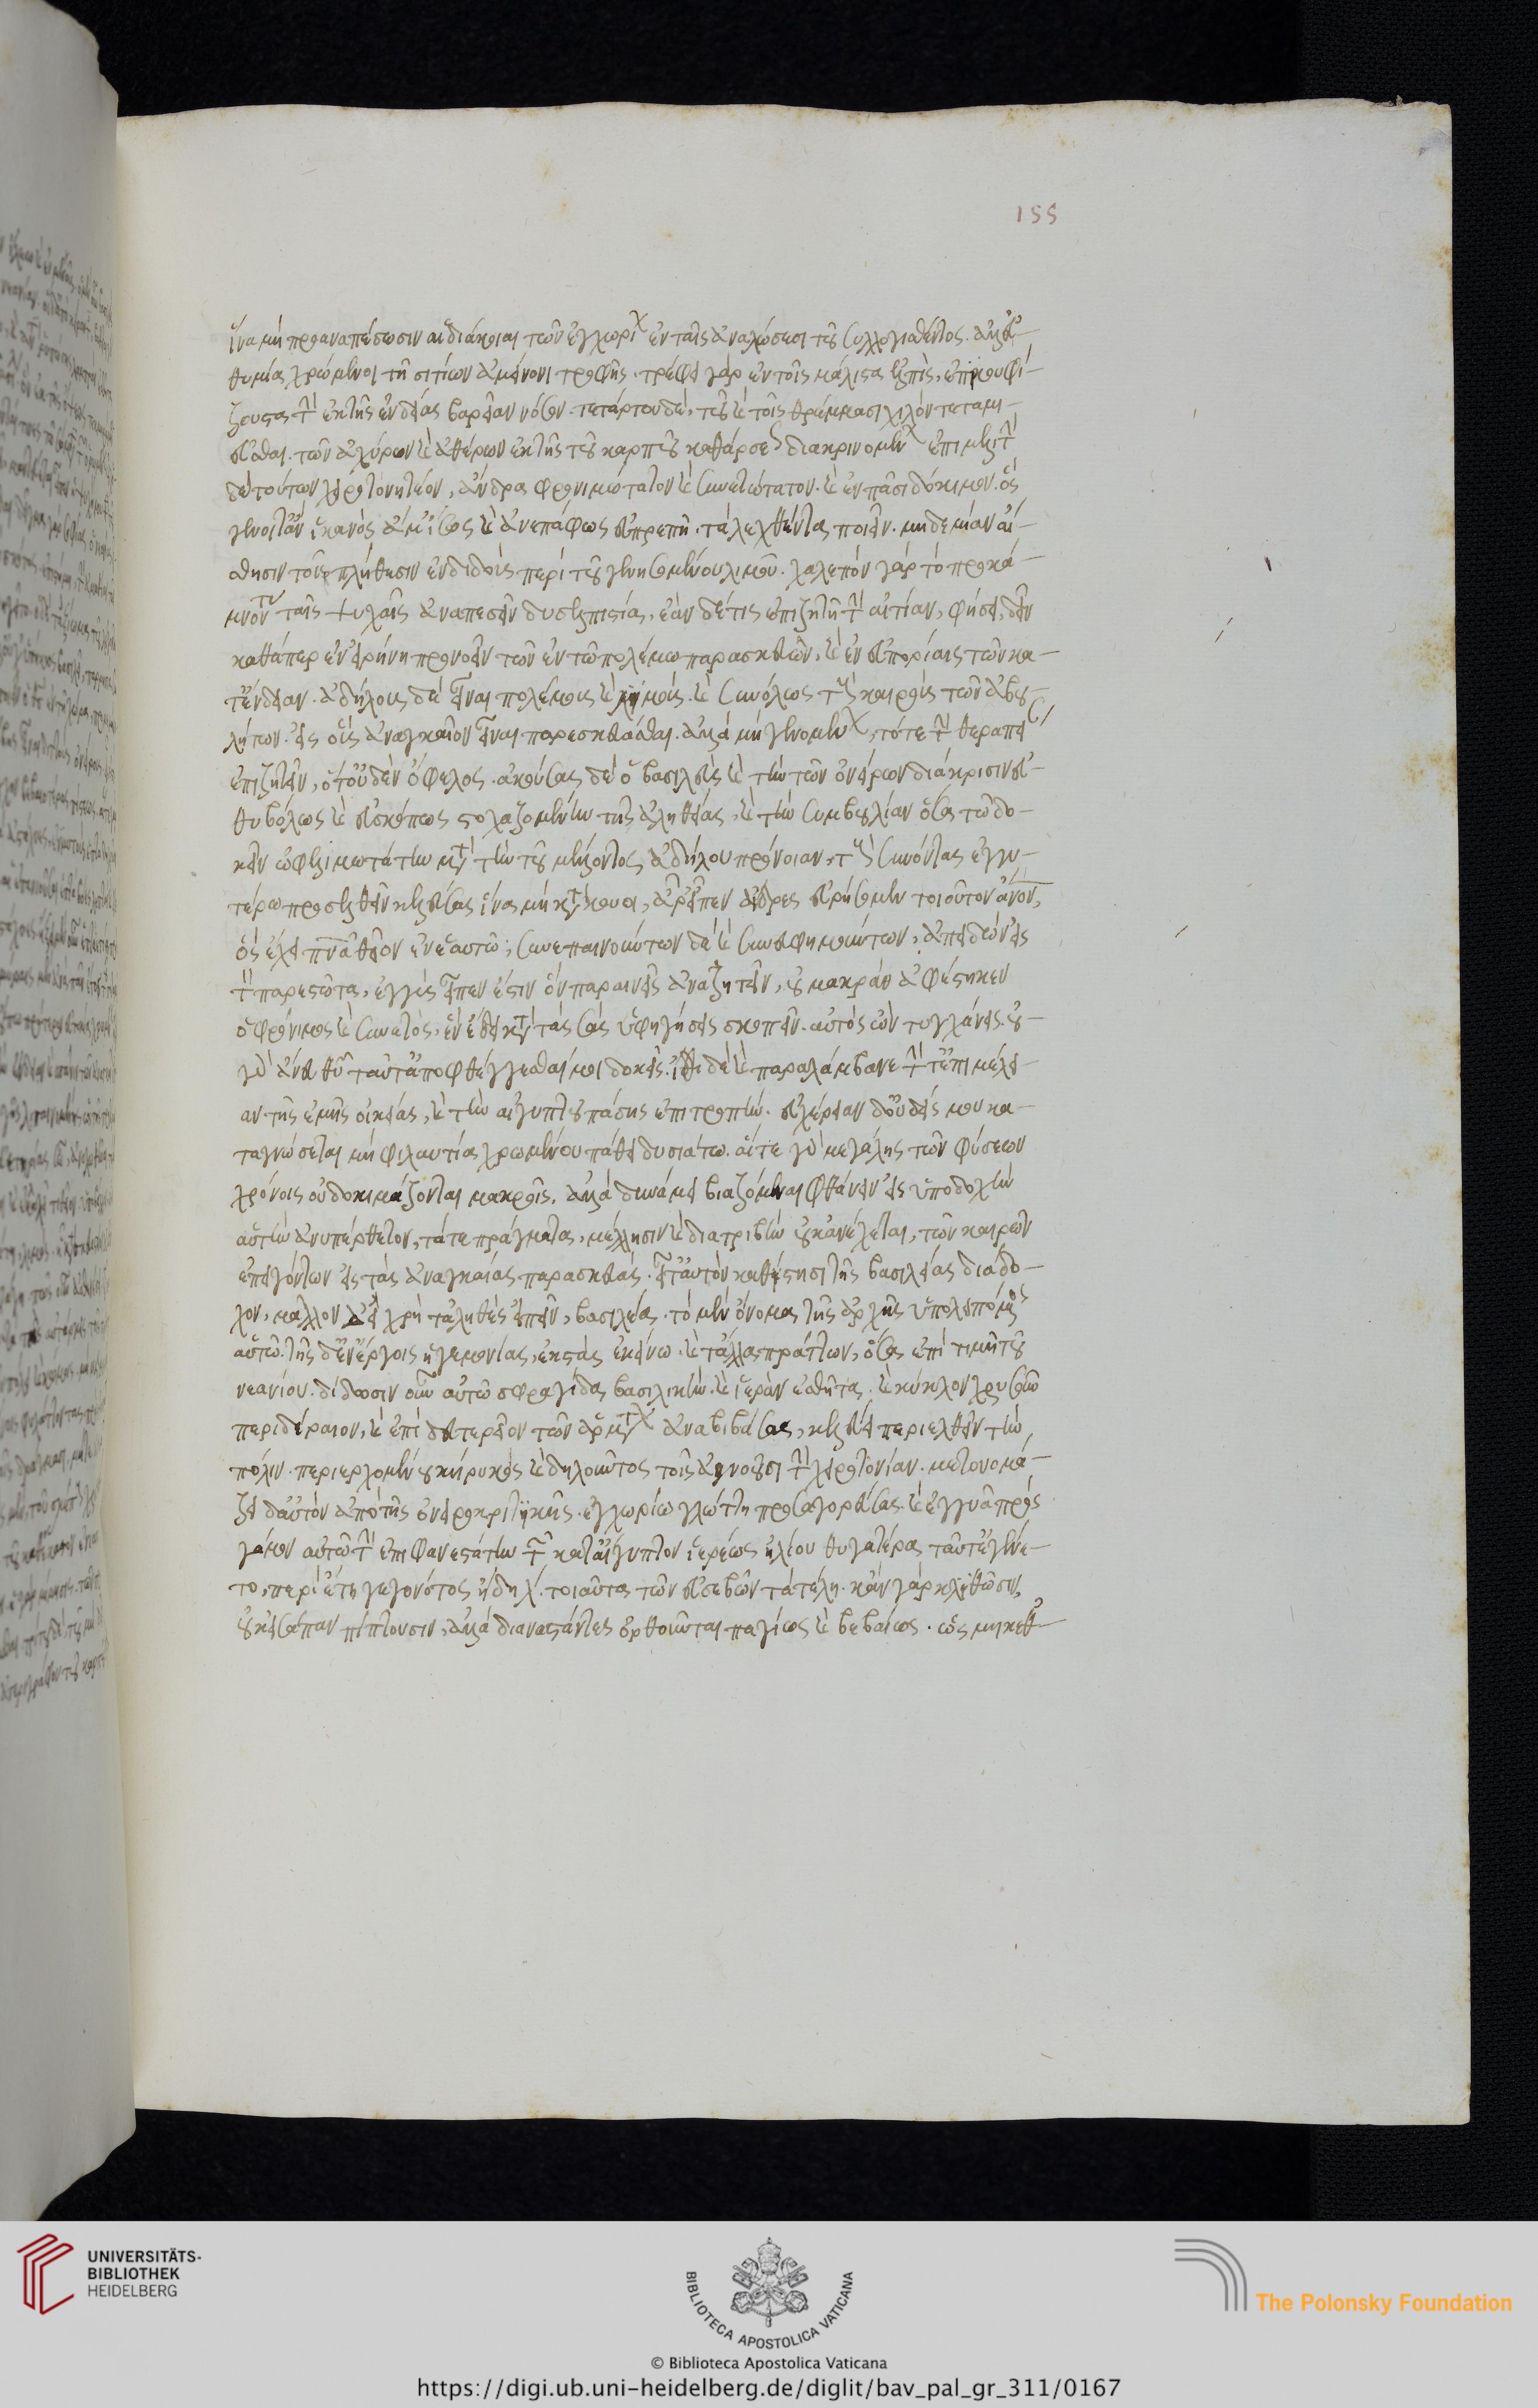 155
ἵνα μὴ προαναπέσωσιν αἱ διάνοιαι τῶν ἐγχωρί ἐν ταῖς ἀναλώσεσι τοῦ συλλογισθέντος. ἀλλ' εὐ-
θυμία χρώμενοι τῇ σιτίων ἀμείνονι τροφῆς. τρέφει γὰρ ἐν τοῖς μάλιστα ἐλπὶς, ἐπικουφί-
ζουσα τὴν ἐκ τῆς ἐνδείας βαρεῖαν νόσον. τετάρτου δὲ, τοῦ καὶ τοῖς θρέμμασι χιλὸν τεταμι-
εῦσθαι. τῶν ἀχύρων καὶ ἀθέρων ἐκ τῆς τοῦ καρποῦ καθάρσε διακρινομεν ἐπιμελητὴν
δὲ τούτων χειροτονητέον, ἄνδρα φρονιμώτατον καὶ συνετώτατον. καὶ ἐν πᾶσι δόκιμον. ὃς
γένοιτ' ἂν ἱκανὸς ἀμίσως καὶ ἀνεπάφως εὐπρεπῆ. τὰ λεχθέντα ποιεῖν. μηδεμίαν αἴ-
σθησιν τοῖς πλήθεσιν ἐνδιδοὺς περὶ τοῦ γενησομένου λιμοῦ. χαλεπὸν γὰρ τὸ προκά-
μνοντ ταῖς ψυχαῖς ἀναπεσεῖν δυσελπιστία, ἐὰν δέ τις ἐπιζητῇ τὴν αἰτίαν, φήσει, δεῖν
καθάπερ ἐν εἰρήνῃ προνοεῖν τῶν ἐν τῷ πολέμω παρασκευῶν, καὶ ἐν εὐπορίαις τῶν κα-
τ' ἔνδειαν. ἀδήλους δὲ εἶναι πολέμους καὶ λιμούς. καὶ συνόλως τοὺς καιροὺς τῶν ἀβου-
λήτων. εἰς οἷς ἀναγκαῖον εἶναι παρεσκευάσθαι. ἀλλὰ μὴ γενομεν, τότε τὴν θεραπεί
ἐπιζητεῖν, ὅτ' οὐδὲν ὄφελος. ἀκούσας δὲ ὁ βασιλεὺς καὶ τὴν τῶν ὀνείρων διάκρισιν εὐ-
θυβόλως καὶ εὐσκόπως στοχαζομένην τῆς ἀληθείας, καὶ τὴν συμβουλίαν ὅσα τῷ δο-
κεῖν ὠφελιμωτάτην μετὰ τὴν τοῦ μέλλοντος ἀδήλου πρόνοιαν, τοὺς συνόντας ἐγγυ-
τέρω προσελθεῖν κελεύσας ἵνα μὴ κατακούοι, ἆρ' εἶπεν ἄνδρες εὑρήσομεν τοιοῦτον ἄνον,
ὃς ἔχει πνα θεῖον ἐν ἑαυτῶ; συνεπαινούντων δὲ καὶ συνευφημούντων, ἀπιδὼν εἰς
τὸν παρεστῶτα, ἐγγὺς εἶπεν ἐστὶν ὃν παραινεῖς ἀναζητεῖν, οὐ μακρὰν ἀφέστηκεν
ὁ φρόνιμος καὶ συνετὸς, ὃν ἔδει κατὰ τὰς σὰς ὑφηγήσεις σκοπεῖν. αὐτὸς ὢν τυγχάνεις. οὐ
γὰρ ἄνευ θῦ ταῦτ' ἀποφθέγγεσθαί μοι δοκεῖς. ἴθι δὴ καὶ παραλάμβανε τὴν τ' ἐπιμέλει-
αν τῆς ἐμῆς οἰκίας, καὶ τὴν αἰγύπτου πάσης ἐπιτροπήν. εὐχέρειαν δ' οὐδείς μου κα-
ταγνώσεται μὴ φιλαυτία χρωμένου πάθει δυσιάτω. αἵ τε γὰρ μεγάλης τῶν φύσεων
χρόνοις οὐ δοκιμάζονται μακροῖς, ἀλλὰ δυνάμει βιαζόμεναι φθάνειν εἰς ὑποδοχὴν
αὐτῶν ἀνυπέρθετον, τά τε πράγματα, μέλλησιν καὶ διατριβὴν οὐκ ἀνέχεται, τῶν καιρῶν
ἐπειγόντων εἰς τὰς ἀναγκαίας παρασκευάς. εἶτ' αὐτὸν καθίστησι τῆς βασιλείας διάδο-
χον, μᾶλλον δ' εἰ χρὴ τἀληθὲς εἰπεῖν, βασιλέα. τὸ μὲν ὄνομα τῆς ἀρχῆς ὑπολειπόμενος
αὐτῷ. τῆς δ' ἐν ἔργοις ἡγεμονίας, ἐκστὰς ἐκείνω. καὶ τἄλλα πράττων, ὅσα ἐπὶ τιμῇ τοῦ
νεανίου. δίδωσιν οὖν αὐτῶ σφραγίδα βασιλικήν. καὶ ἱερὰν ἐσθῆτα. καὶ κύκλον χρυσοῦν
περιδέραιον, καὶ ἐπὶ δευτερεῖον τῶν ἁρμάτ ἀναβιβάσας, κελεύει περιελθεῖν τὴν
πόλιν. περιερχομένου κήρυκος καὶ δηλοῦντος τοῖς ἀγνοοῦσι τὴν χειροτονίαν. μετονομά-
ζει δ' αὐτὸν ἀπὸ τῆς ὀνειροκριτικῆς. ἐγχωρίω γλώττη προσαγορεύσας. καὶ ἐγγυᾶ πρὸς
γάμον αὐτῶ τὴν ἐπιφανεστάτην τῶν κατ' αἴγυπτον ἱερέως ἡλίου θυγατέρα, ταῦτ' ἐγένε-
το, περὶ ἔτη γεγονότος ἤδη λ'. τοιαῦτα τῶν εὐσεβῶν τὰ τέλη. κἂν γὰρ κλιθῶσιν
οὐκ εἰσάπαν πίπτουσιν, ἀλλὰ διαναστάντες ὀρθοῦνται παγίως καὶ βεβαίως. ὡς μηκέθ'
UNIVERSITÄTS-
BIBLIOTHEK
HEIDELBERG
BIBLIOTECA APOSTOLICA VATICANA
The Polonsky Foundation
© Biblioteca Apostolica Vaticana
https://digi.ub.uni-heidelberg.de/diglit/bav_pal_gr_311/0167